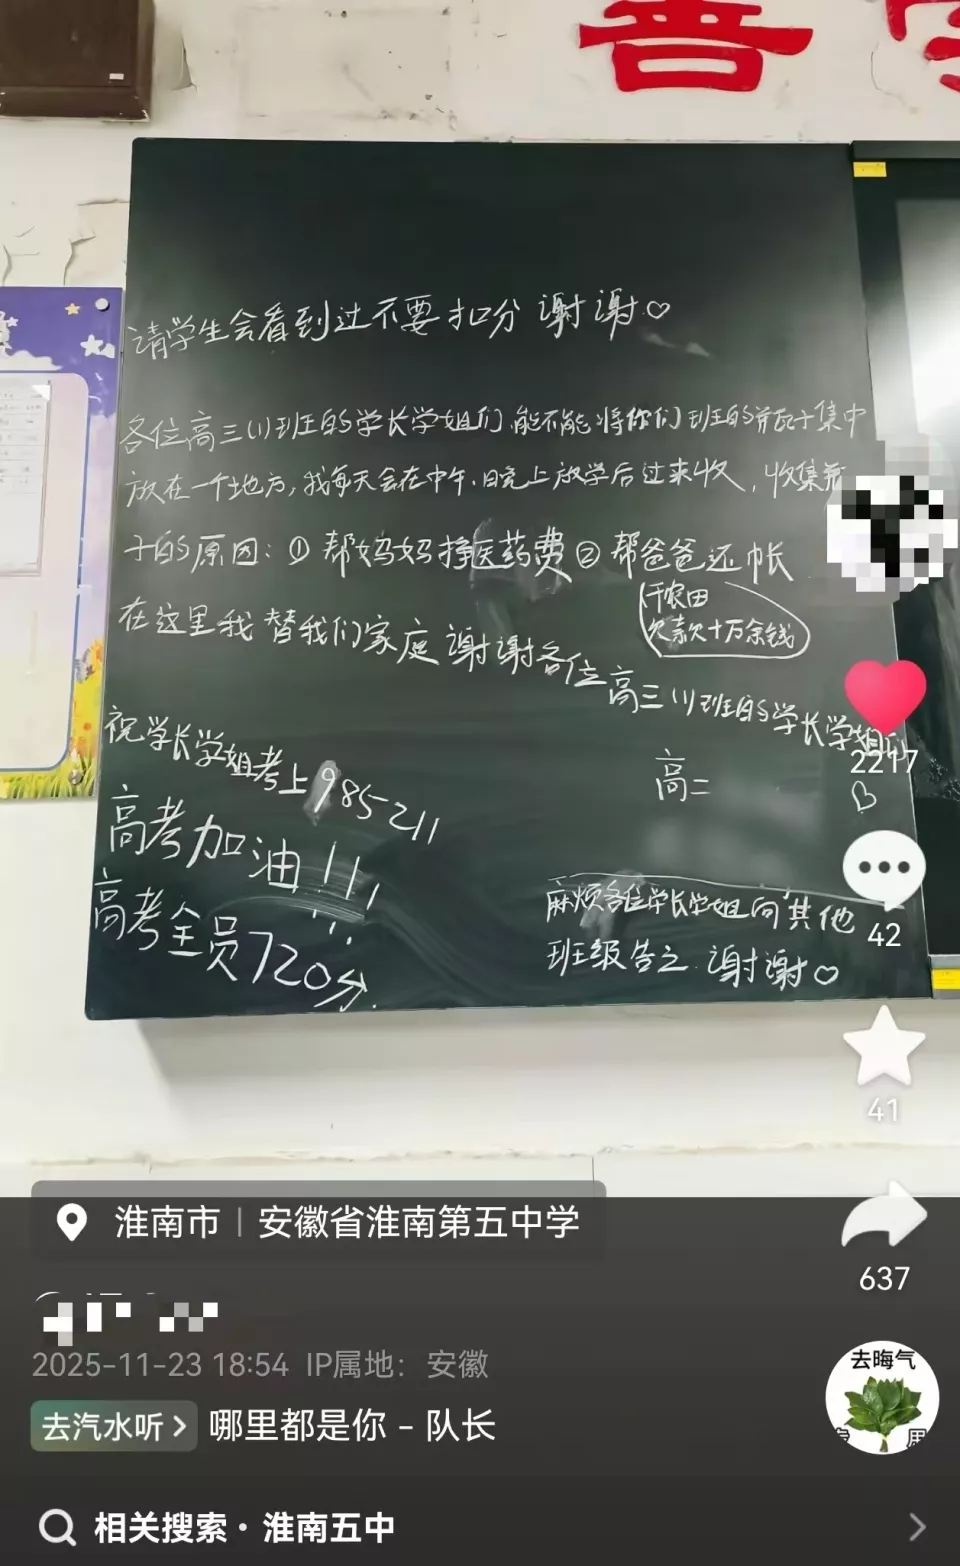 请学生会看到过不要扣分 谢谢♡
各位高三(1)班的学长学姐们,能不能将你们班的瓶子集中
放在一个地方,我每天会在中午、晚上放学后过来收,收集瓶
子的原因:① 帮妈妈挣医药费② 帮爸爸还帐
干农田
欠款十万余钱
在这里我替我们家庭谢谢各位高三(1)班的学长学姐们
祝学长学姐考上985211
高二
高考加油!!!
高考全员720分.
麻烦各位学长学姐向其他
班级告之 谢谢♡
2217
42
41
淮南市 | 安徽省淮南第五中学
637
2025-11-23 18:54 IP属地:安徽
去晦气
去汽水听 > 哪里都是你 - 队长
相关搜索· 淮南五中